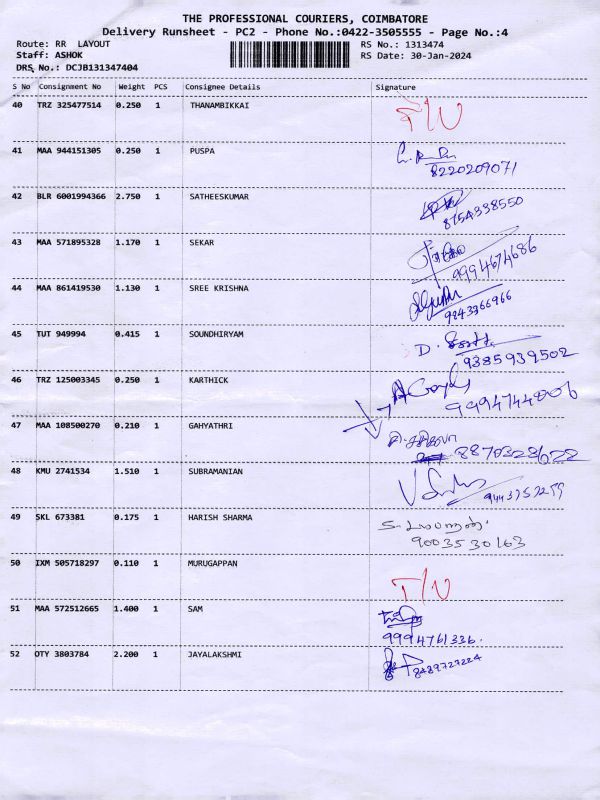 THE PROFESSIONAL COURIERS, COIMBATORE
Delivery Runsheet - PC2 - Phone No.:0422-3505555 - Page No.:4
Route: RR LAYOUT RS No.: 1313474
Staff: ASHOK RS Date: 30-Jan-2024
DRS No.: DCJB131347404
S No Consignment No Weight PCS Consignee Details Signature
40 TRZ 325477514 0.250 1 THANAMBIKKAI
41 MAA 944151305 0.250 1 PUSPA
8220209071
42 BLR 6001994366 2.750 1 SATHEESKUMAR
8754338550
43 MAA 571895328 1.170 1 SEKAR
9994674686
44 MAA 861419530 1.130 1 SREE KRISHNA
9843366966
45 TUT 949994 0.415 1 SOUNDHIRYAM
D.
9385939502
46 TRZ 125003345 0.250 1 KARTHICK
47 MAA 108500270 0.210 1 GAHYATHRI
48 KMU 2741534 1.510 1 SUBRAMANIAN
49 SKL 673381 0.175 1 HARISH SHARMA
9003530163
50 IXM 505718297 0.110 1 MURUGAPPAN
51 MAA 572512665 1.400 1 SAM
9994761336.
52 OTY 3803784 2.200 1 JAYALAKSHMI
8489727224